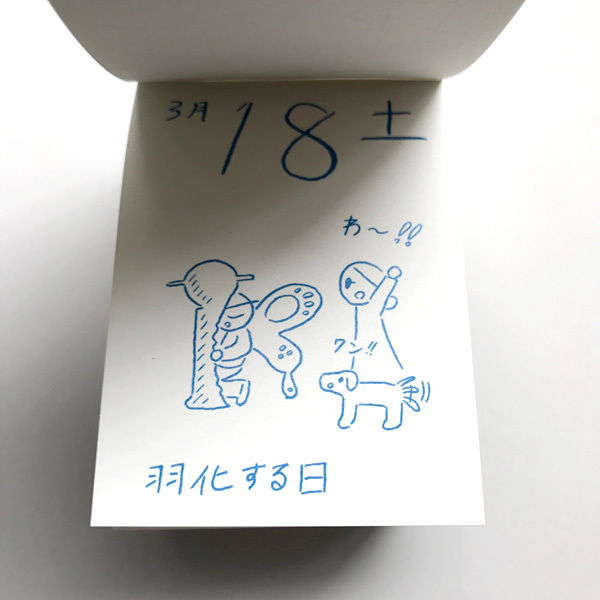 3月 18 土
わ〜!!
ワン!!
羽化する日